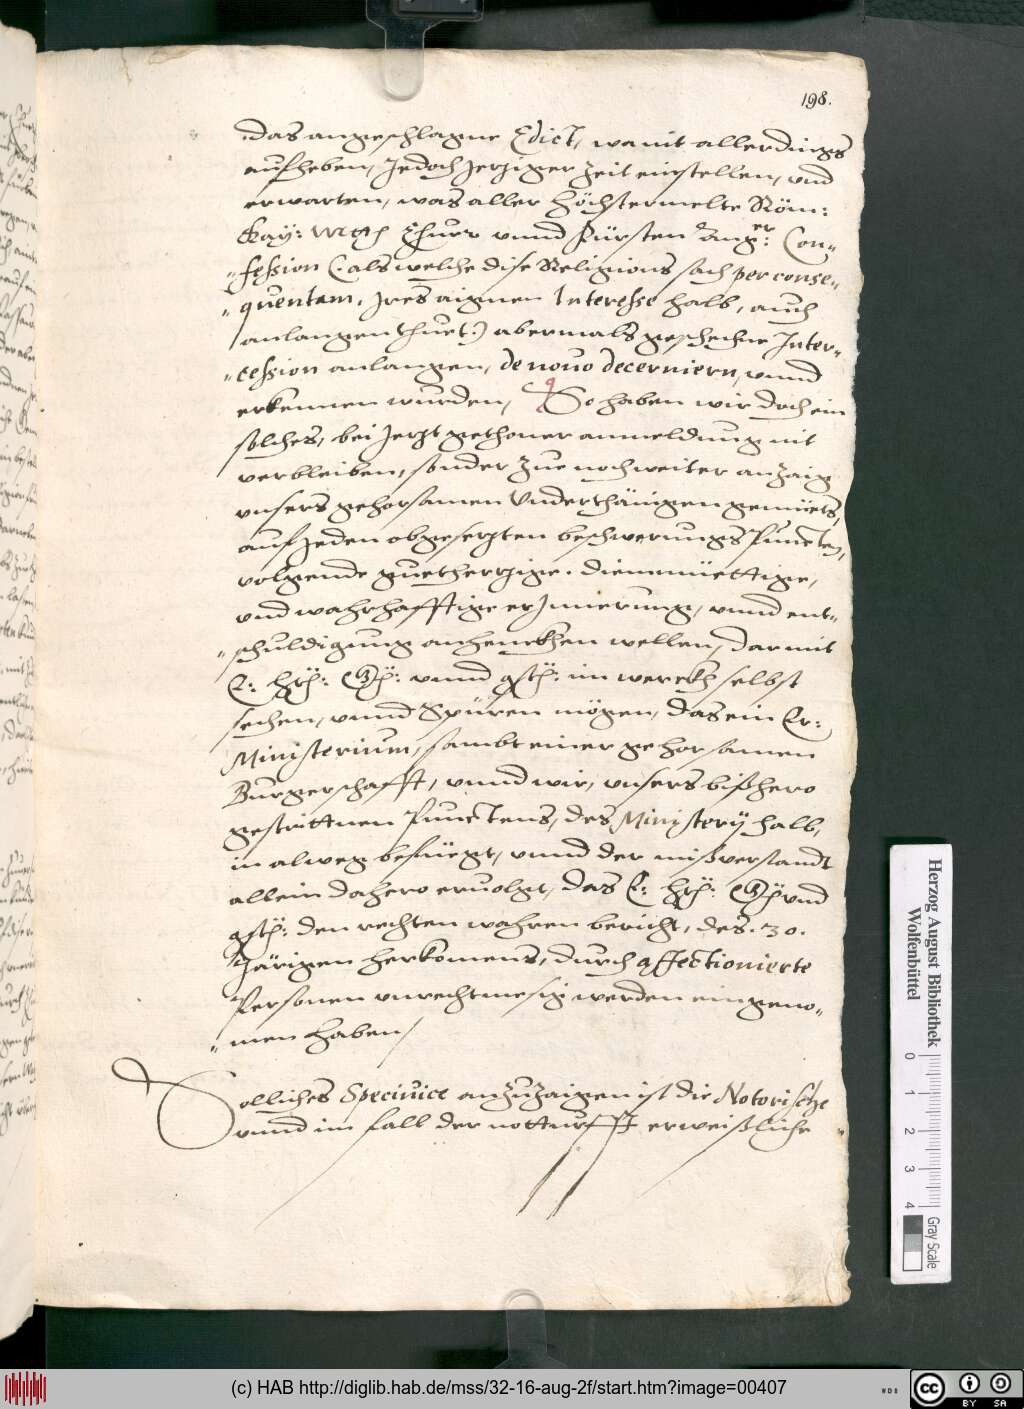 198.
das angeschlagne Edict, wo nit allerdings
aufheben, Jedoch Jetziger Zeit einstellen, und
erwarten, was aller höchstermelte Röm:
Kay: Mtt Chur vnnd Fürsten Aug:er Con-
-fession (: als welche dise Religions sach per conse-
-quentam, Ires aignen Interesse halb, auch
anlangen thuet:) abermals geschechne Inter-
-cession anlangen, de novo decerniern, vnnd
erkennen wurden, So haben wir doch ein
solches, bei Jetzt gethoner anmeldung nit
verbleiben, sonder Zue noch weiter anzaig
vnsers gehorsamen Underthänigen gemüets,
auf Jeden obgesetzten beschwerungs Puncten,
volgende guethertzige. diemmüettige,
vnd wahrhafftige erJnnerung, vnnd ent-
-schuldigung anhenckhen wellen, darmit
E: hrl: Gl: vnnd gstl: im werckh selbst
sechen, vnnd Spüren mögen, das ein Er:
Ministerium, sambt einer gehorsamen
Burgerschafft, vnnd wir, vnsers bißhero
gestrittnen Punctens, des Ministery halb,
in alweg befüegt, vnnd der mißverstandt
allein dahero ervolgt, das E: hrl: Gl: vnd
gstl: den rechten wahren bericht, des .30.
Järigen herkomens, durch affectionierte
Personen vnrechtmesig werden eingeno-
-men haben/
Solliches Specivice anzuzaigen ist die Notorisch
vnnd im fall der notturfft erweißliche
Herzog August Bibliothek
Wolfenbüttel
0 1 2 3 4
Gray Scale
(c) HAB http://diglib.hab.de/mss/32-16-aug-2f/start.htm?image=00407
WDB
cc
BY SA